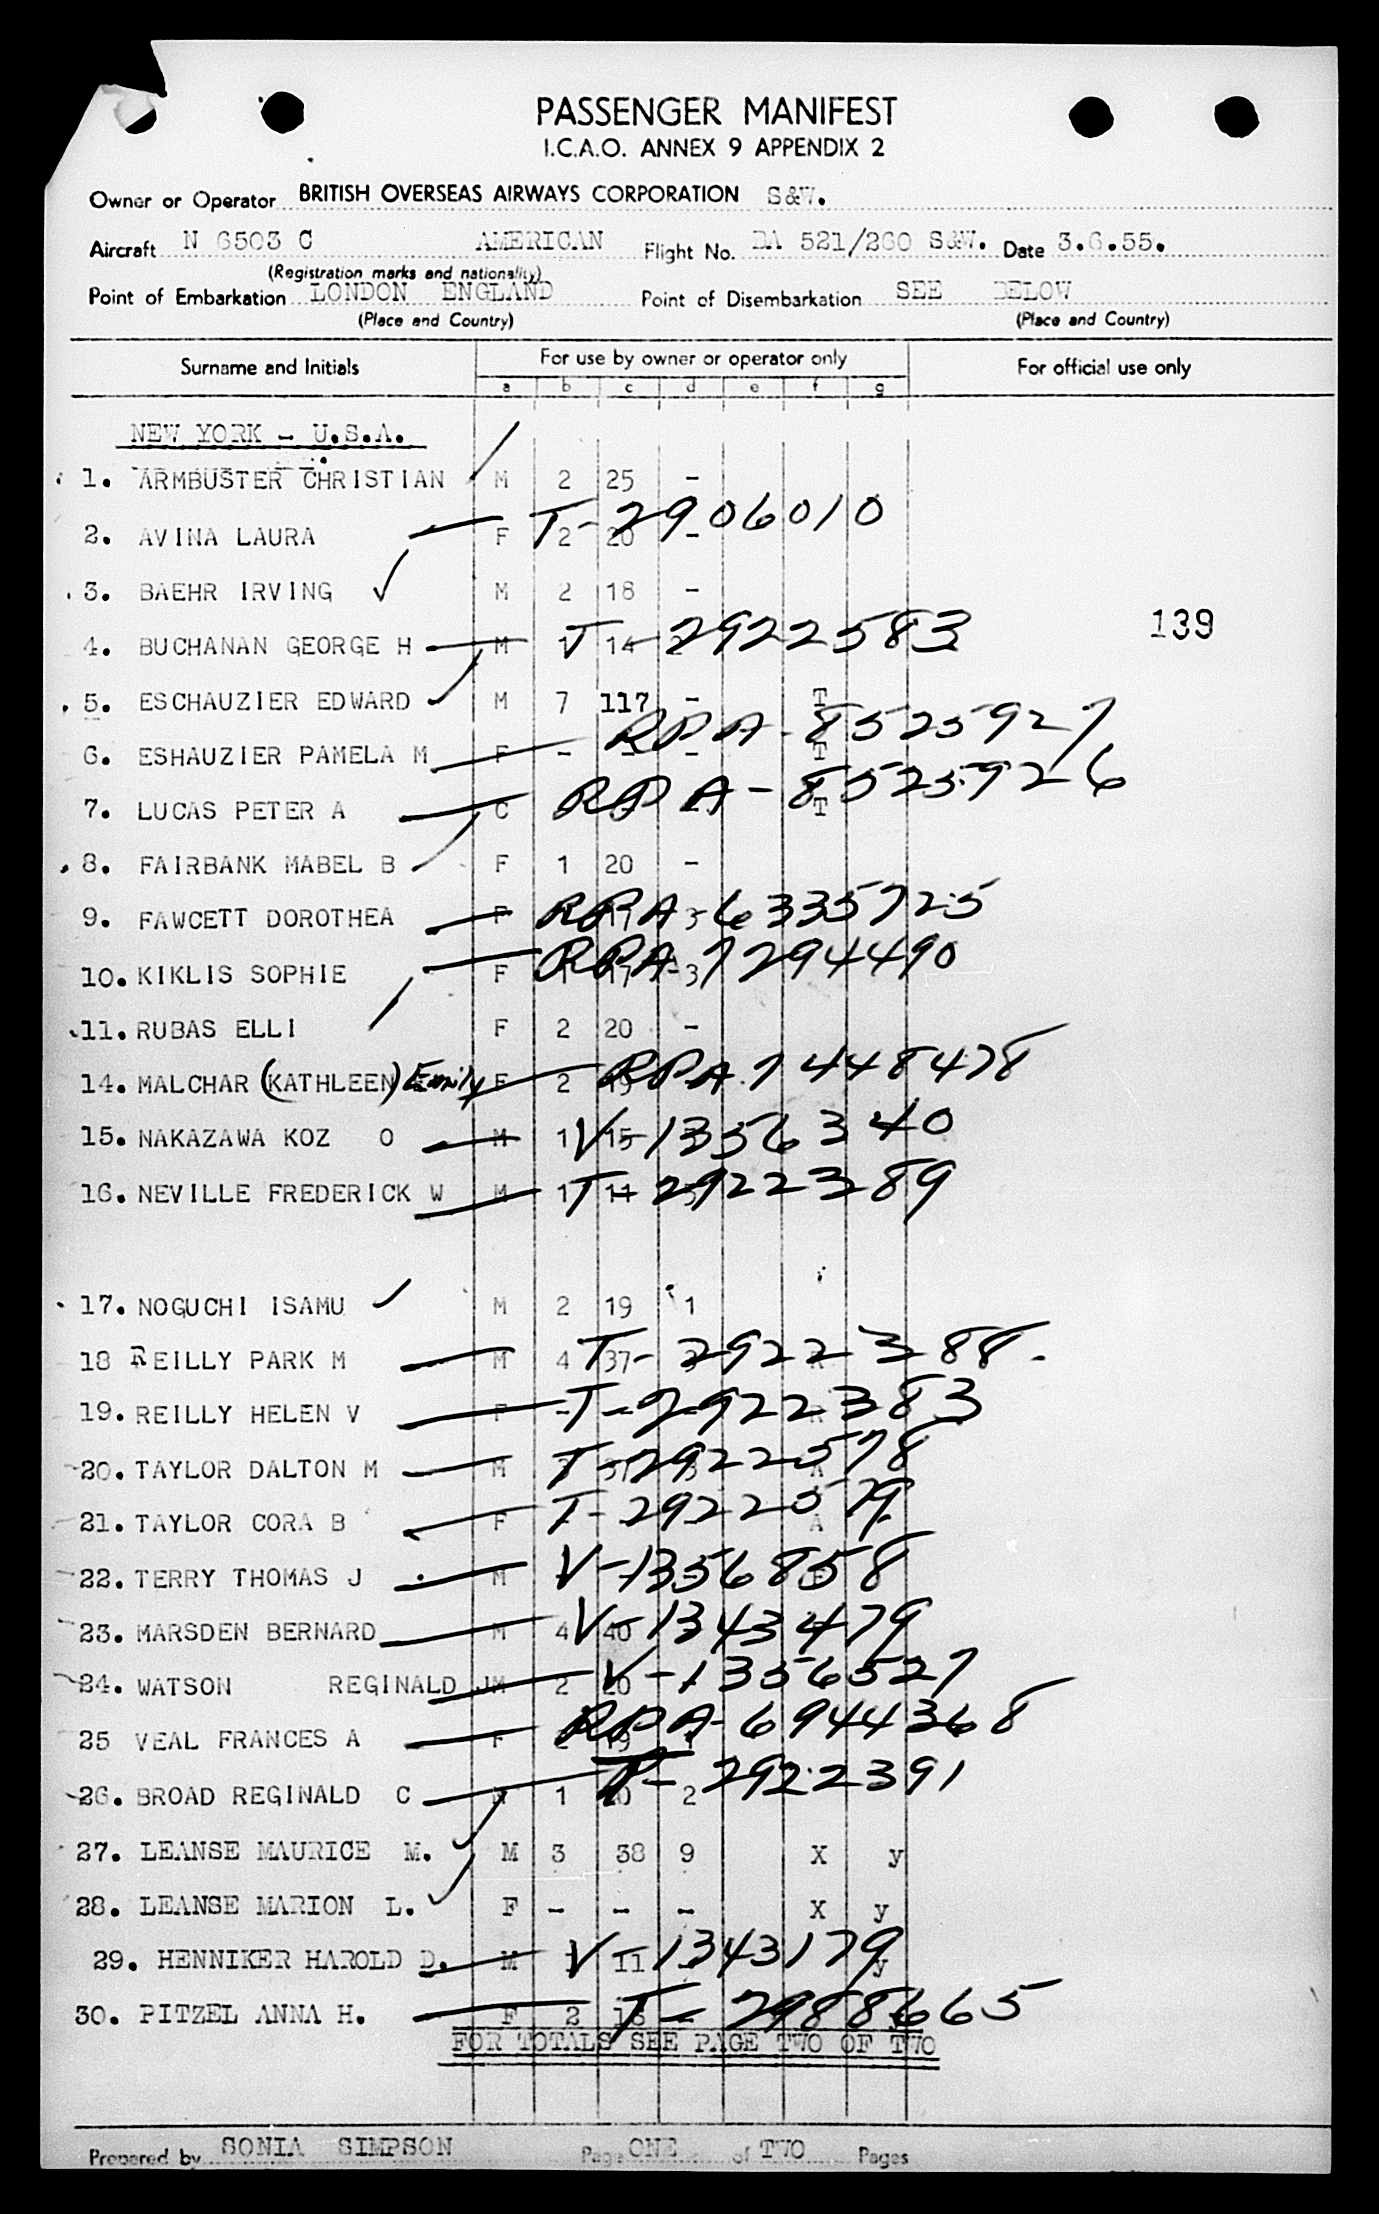 PASSENGER MANIFEST
I.C.A.O. ANNEX 9 APPENDIX 2
Owner or Operator BRITISH OVERSEAS AIRWAYS CORPORATION S&W.
Aircraft N 6503 C AMERICAN Flight No. BA 521/260 S&W. Date 3.6.55.
(Registration marks and nationality)
Point of Embarkation LONDON ENGLAND Point of Disembarkation SEE BELOW
(Place and Country) (Place and Country)
Surname and Initials For use by owner or operator only For official use only
a b c d e f g
NEW YORK - U.S.A.
1. ARMBUSTER CHRISTIAN M 2 25 -
2. AVINA LAURA F 2 20 - T-2906010
3. BAEHR IRVING ✓ M 2 18 -
4. BUCHANAN GEORGE H M 1 14 T-2922583
139
5. ESCHAUZIER EDWARD M 7 117 - T
6. ESHAUZIER PAMELA M F - - - T RPA-8525927
7. LUCAS PETER A C T RPA-8525926
8. FAIRBANK MABEL B F 1 20 -
9. FAWCETT DOROTHEA F 17 3 RPA-6335725
10. KIKLIS SOPHIE F 1 17 3 RPA-7294490
11. RUBAS ELLI F 2 20 -
14. MALCHAR (KATHLEEN) Emily F 2 19 RPA 7448478
15. NAKAZAWA KOZ O M 1 15 V-1356340
16. NEVILLE FREDERICK W M 1 11 T-2922389
17. NOGUCHI ISAMU M 2 19 1
18 REILLY PARK M M 4 37 T-2922388.
19. REILLY HELEN V F - - T-2922383
20. TAYLOR DALTON M M 37 T-2922578
21. TAYLOR CORA B F - - A T-2922579
22. TERRY THOMAS J M V-1356858
23. MARSDEN BERNARD M 4 40 V-1343479
24. WATSON REGINALD J M 2 20 V-1356527
25 VEAL FRANCES A F 2 19 1 RPA-6944368
26. BROAD REGINALD C M 1 10 2 T-2922391
27. LEANSE MAURICE M. M 3 38 9 X y
28. LEANSE MARION L. F - - - X y
29. HENNIKER HAROLD D. M 11 y V-1343179
30. PITZEL ANNA H. F 2 18 - T-2988665
FOR TOTALS SEE PAGE TWO OF TWO
Prepared by SONIA SIMPSON Page ONE of TWO Pages